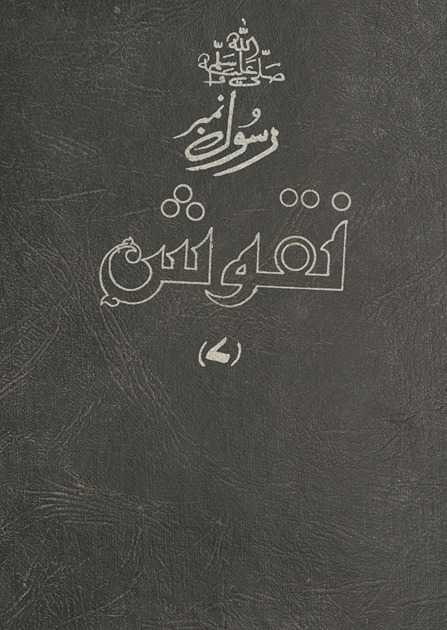 صلی اللہ علیہ وسلم
رسول نمبر
نقوش
(۷)